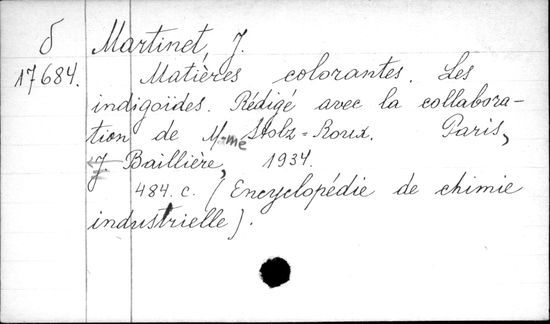 б Martinet, J.
17684. Matières colorantes. Les
indigoïdes. Rédigé avec la collabora-
tion de Mme Stolz-Roux. Paris,
J. Baillière, 1934.
484. c. (Encyclopédie de chimie
industrielle).